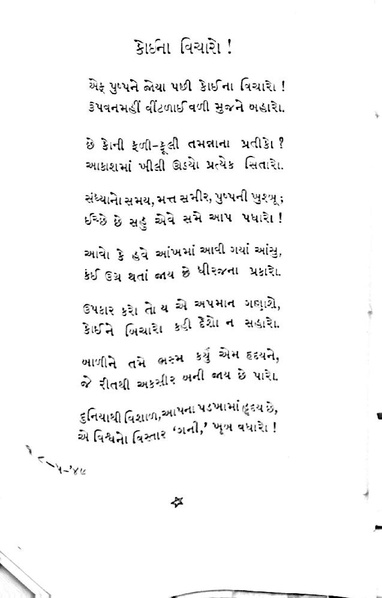 કોઈના વિચારો !
એક પુષ્પને જોયા પછી કોઈના વિચારો !
રૂપવનમહીં વીંટળાઈ વળી સુજને બહારો.
છે કોની ફળી-ફૂલી તમન્નાના પ્રતીકો ?
આકાશમાં ખીલી ઊઠ્યો પ્રત્યેક સિતારો.
સંધ્યાનો સમય, મત્ત સમીર, પુષ્પની ખુશ્બૂ;
ઈચ્છે છે સહુ એવે સમે આપ પધારો !
આવો કે હવે આંખમાં આવી ગયાં આંસુ,
કંઈ ઉગ્ર થતાં જાય છે ધીરજના પ્રકારો.
ઉપકાર કરો તો ય એ અપમાન ગણાશે,
કોઈને બિચારો કહી દેશો ન સહારો.
બાળીને તમે ભસ્મ કર્યું એમ હૃદયને,
જે રીતથી અકસીર બની જાય છે પારો.
દુનિયાથી વિશાળ, આપના પડખામાં હૃદય છે,
એ વિશ્વનો વિસ્તાર ‘ગની,’ ખૂબ વધારો !